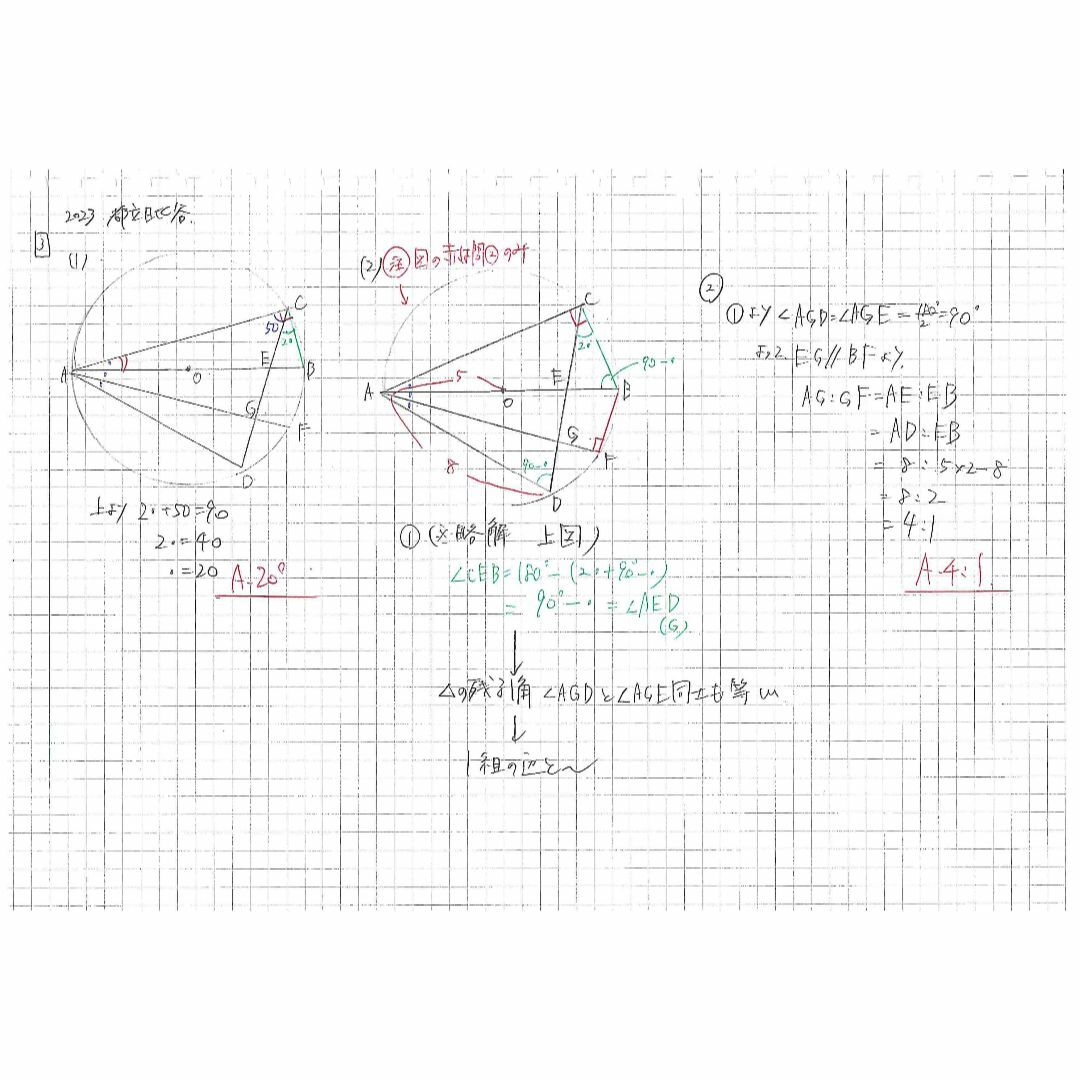 2023 都立日比谷.
3
(1)
A
C
50
2•
E
B
O
G
F
D
上より 2•+50=90
2•=40
•=20
A.20°
(2) 注 図の赤は問②のみ
C
2•
90-•
A
5
E
B
O
G
F
8
90-•
D
① (※略解 上図)
∠CEB=180°-(2•+90°-•)
= 90°-• = ∠AED
(G)
△の残り角 ∠AGDと∠AGE同士も等しい
1組の辺と〜
②
①より ∠AGD=∠AGE=180°/2=90°
よって EG//BFより.
AG:GF=AE:EB
= AD:EB
= 8:5×2-8
= 8:2
= 4:1
A.4:1.